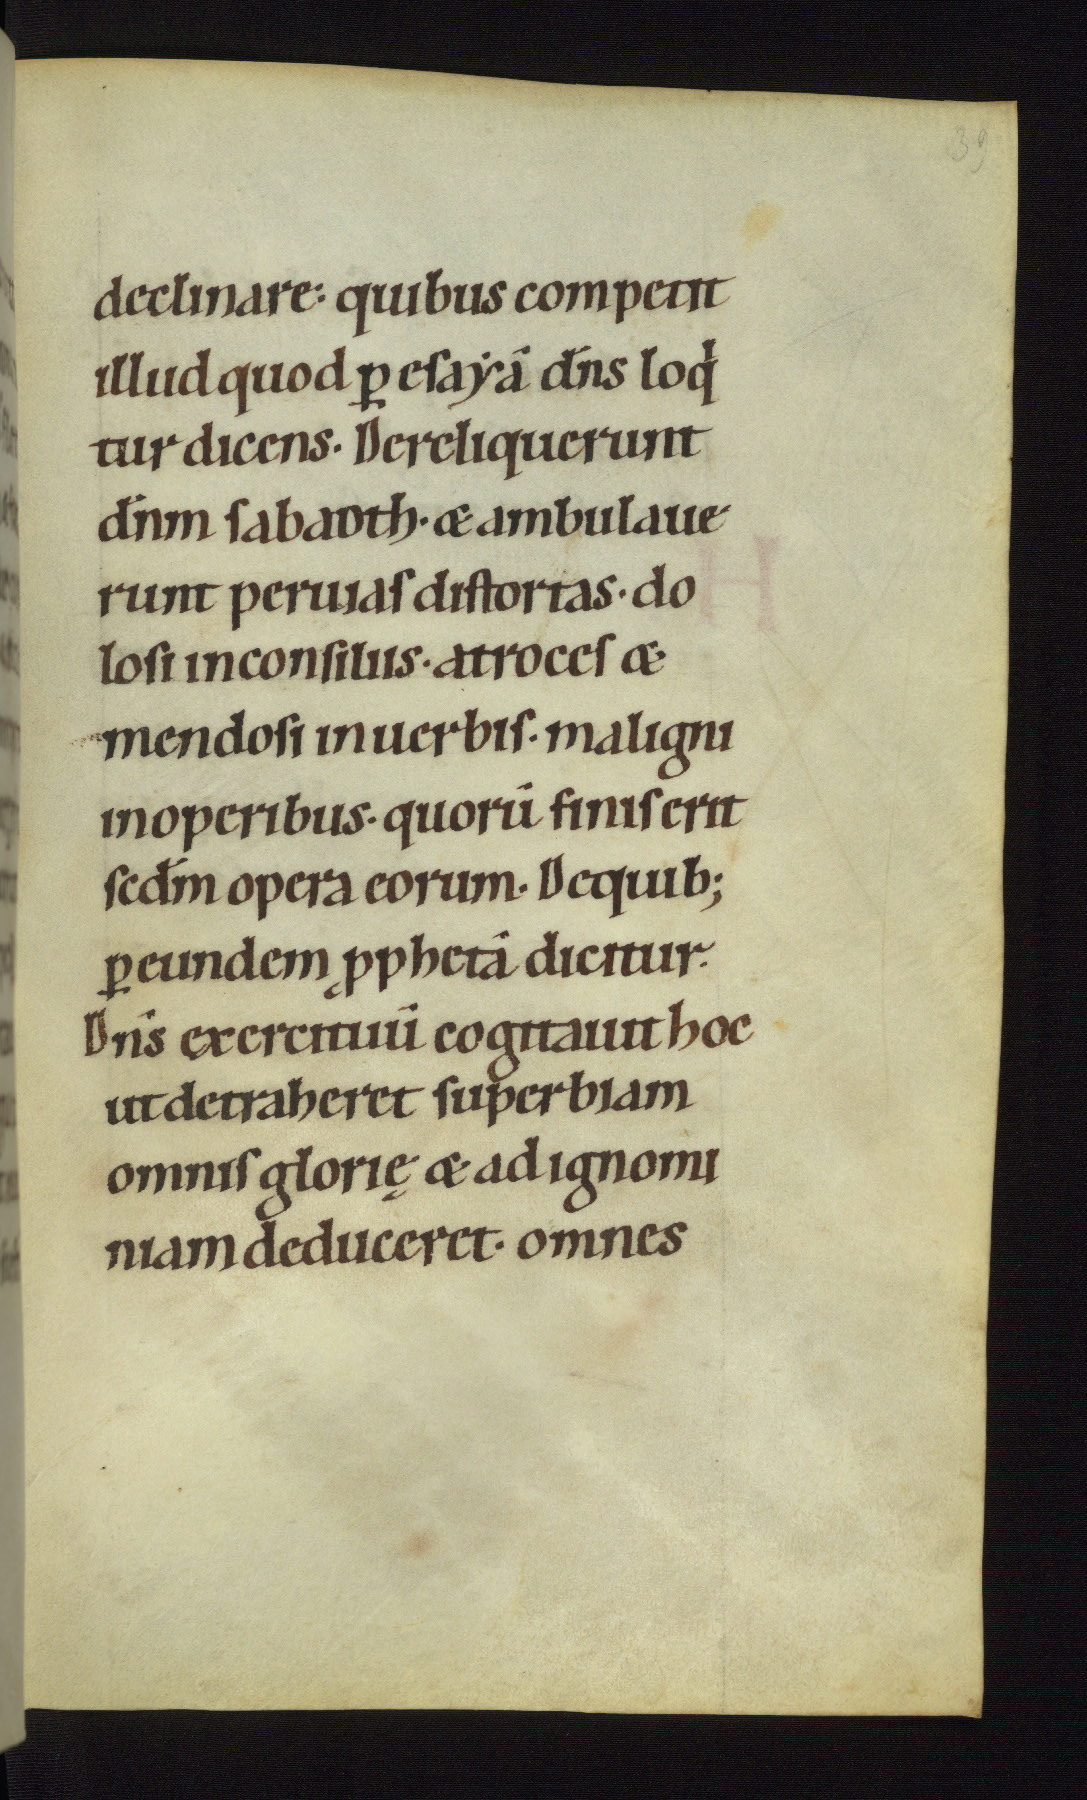 39
declinare: quibus competit
illud quod ꝑ esaẏā dn̄s loq̇
tur dicens. Dereliquerunt
dn̄m sabaoth. & ambulaue
runt peruias distortas. do
losi inconsiliis. atroces &
mendosi inuerbis. maligni
inoperibus. quorū finis erit
scdm̄ opera eorum. Dequib;
ꝑeundem ꝓphetā dicitur.
Dns̄ exercituū cogitauit hoc
utdetraheret superbiam
omnis glorię & ad ignomi
niam deduceret. omnes